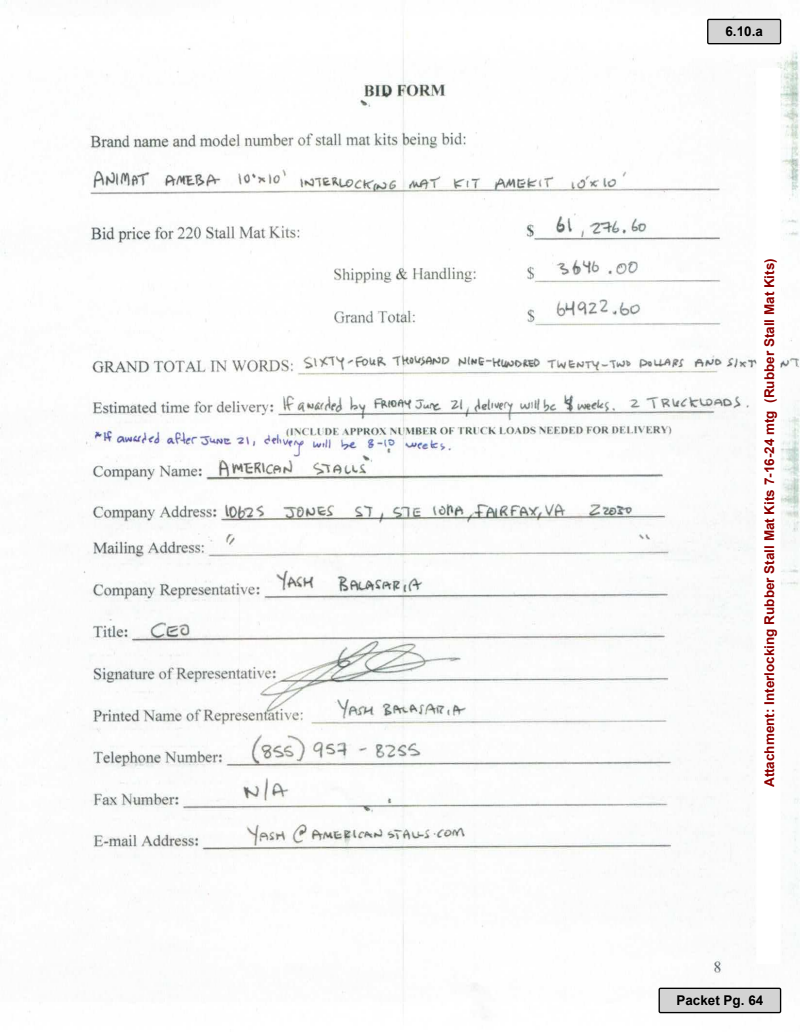 6.10.a
BID FORM
Brand name and model number of stall mat kits being bid:
ANIMAT AMEBA 10'x10' INTERLOCKING MAT KIT AMEKIT 10'x10'
Bid price for 220 Stall Mat Kits: $ 61,276.60
Shipping & Handling: $ 3646.00
Grand Total: $ 64922.60
GRAND TOTAL IN WORDS: SIXTY-FOUR THOUSAND NINE-HUNDRED TWENTY-TWO DOLLARS AND
Estimated time for delivery: If awarded by FRIDAY June 21, delivery will be weeks. 2 TRUCKLOADS.
(INCLUDE APPROX NUMBER OF TRUCK LOADS NEEDED FOR DELIVERY)
*If awarded after JUNE 21, delivery will be 8-10 weeks.
Company Name: AMERICAN STALLS
Company Address: 10625 JONES ST, STE FAIRFAX, VA
Mailing Address: " "
Company Representative: YASH BALASARIA
Title: CEO
Signature of Representative:
Printed Name of Representative: YASH BALASARIA
Telephone Number: (855) 957-8255
Fax Number: N/A
E-mail Address: YASH@AMERICANSTALLS.COM
8
Packet Pg. 64
Attachment: Interlocking Rubber Stall Mat Kits 7-16-24 mtg (Rubber Stall Mat Kits)